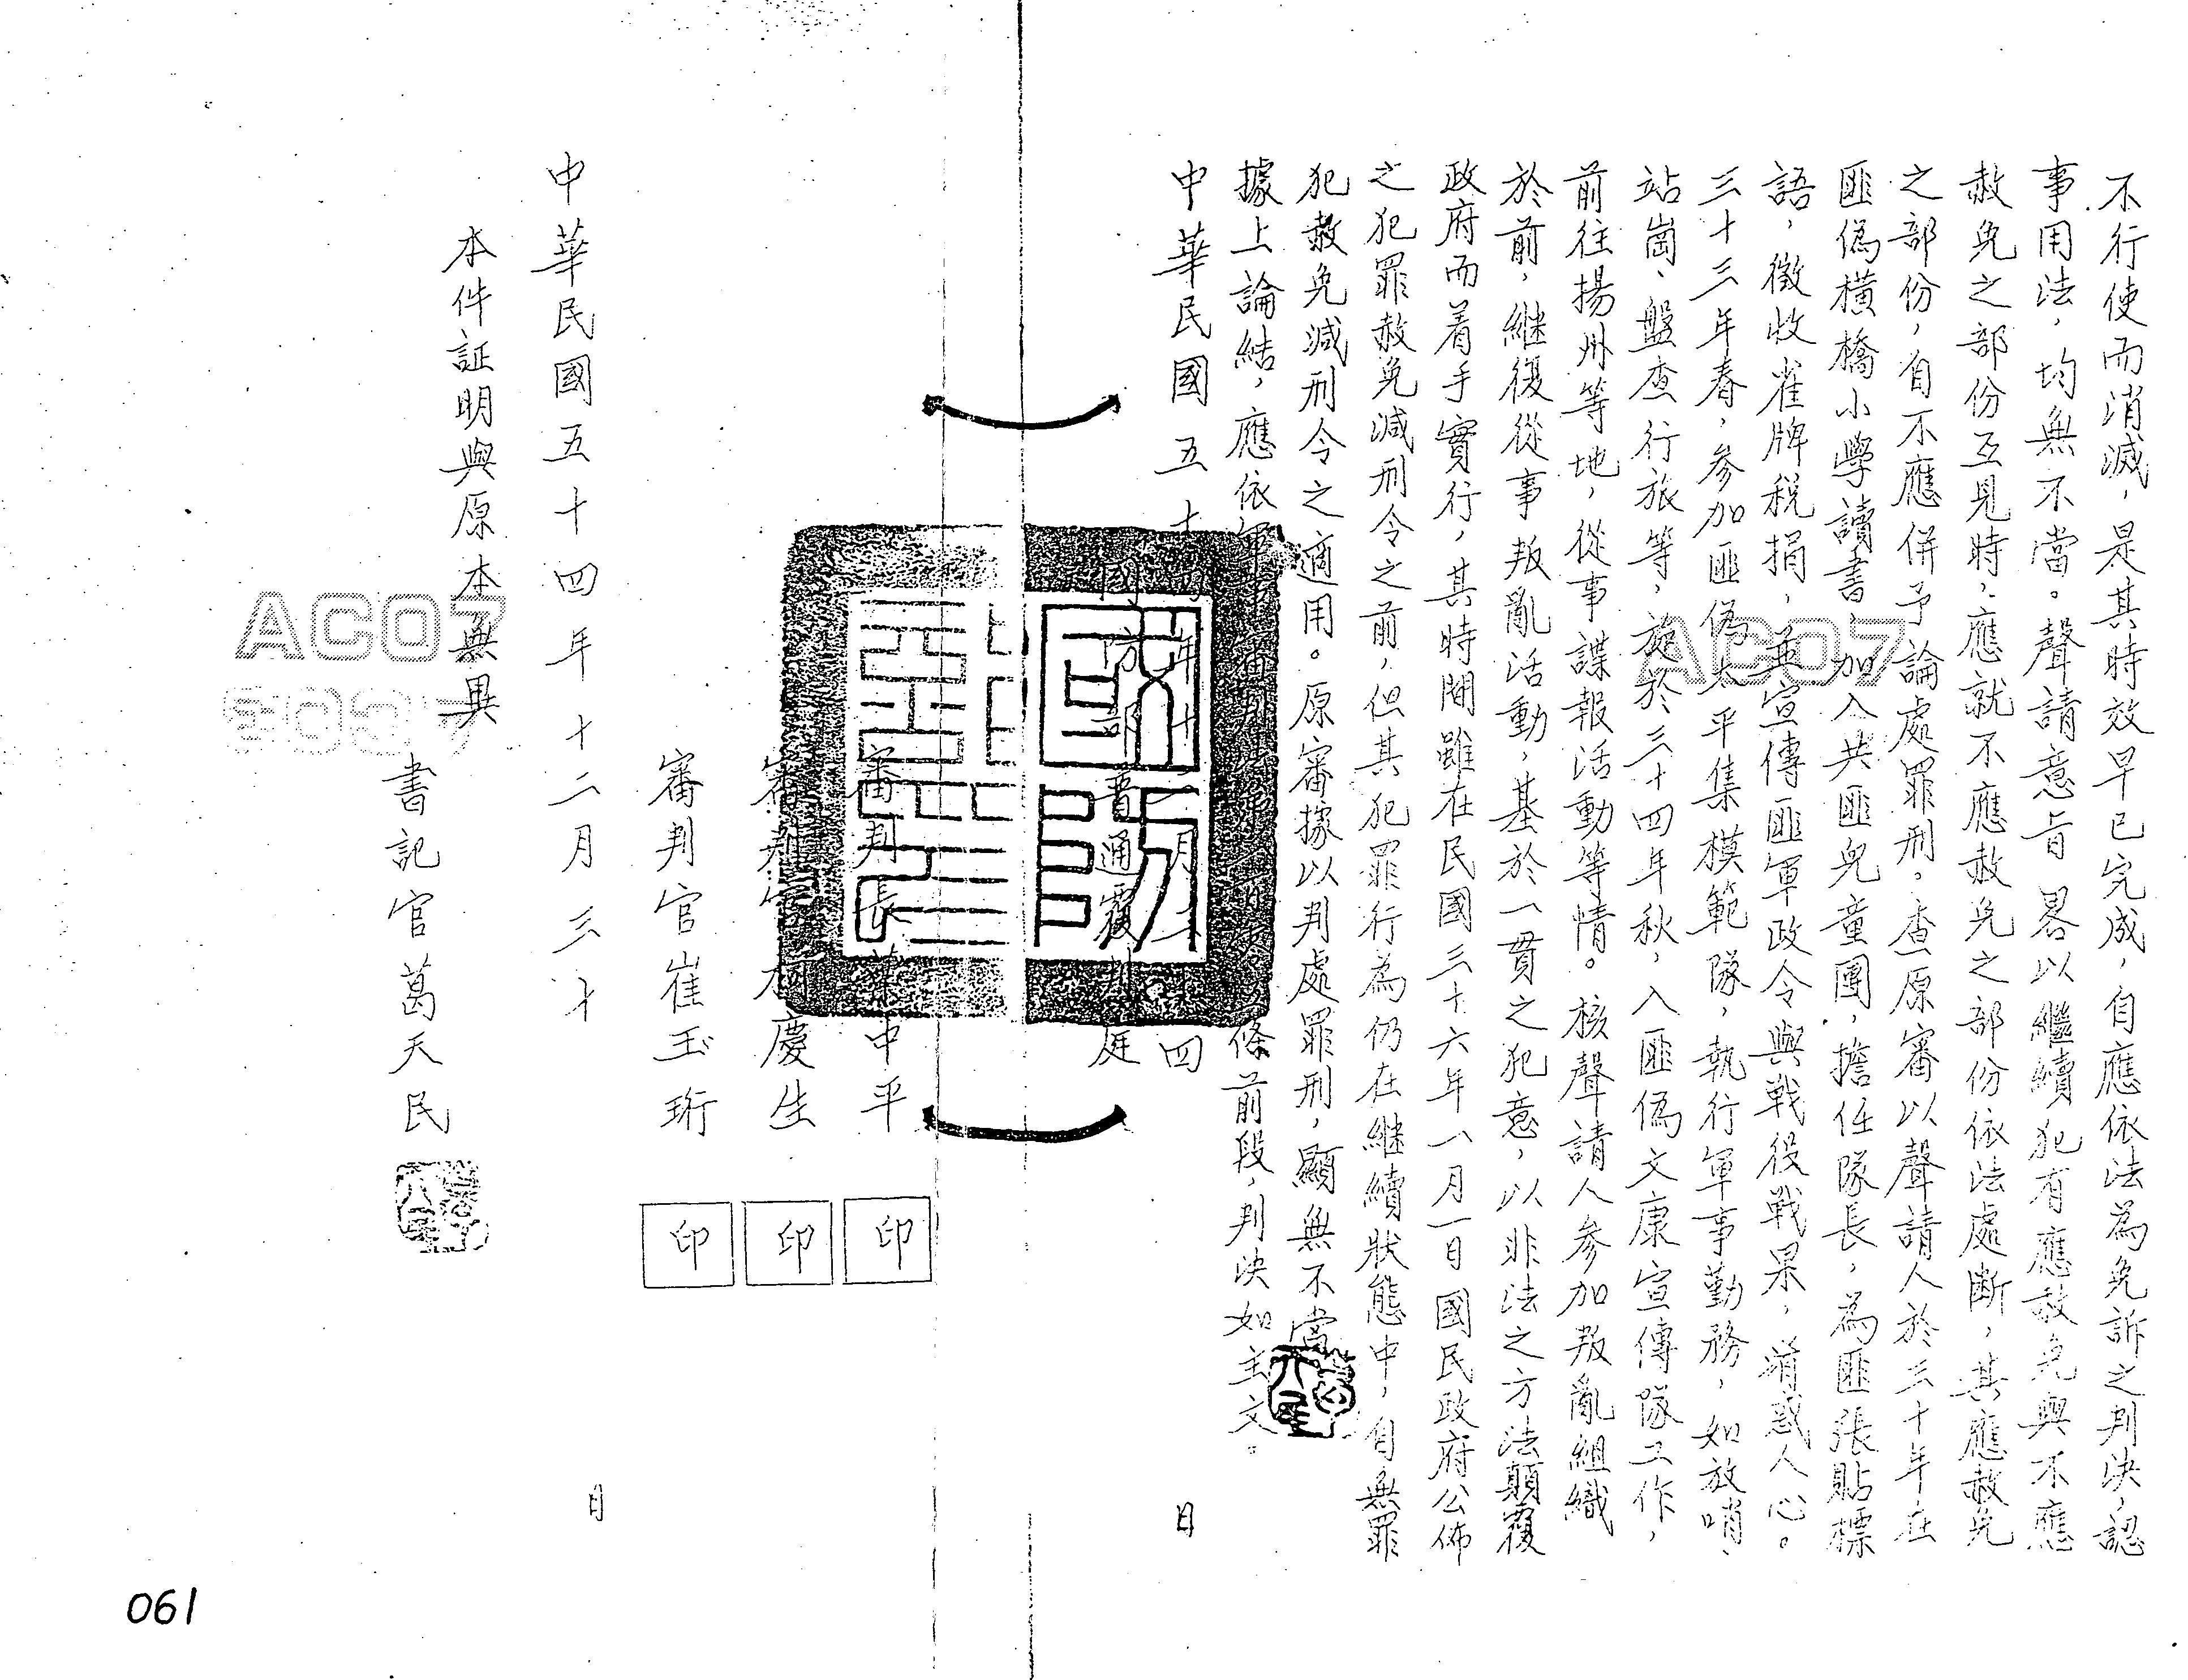 不行使而消滅，是其時效早已完成，自應依法為免訴之判決，認
事用法，均無不當。聲請意旨畧以繼續犯有應赦免與不應
赦免之部份互見時，應就不應赦免之部份依法處斷，其應赦免
之部份，自不應併予論處罪刑。查原審以聲請人於三十年在
匪偽橫橋小學讀書，加入共匪兒童團，擔任隊長，為匪張貼標
語，徵收雀牌稅捐，並宣傳匪軍政令與戰役戰果，淆惑人心。
三十三年春，參加匪偽太平集模範隊，執行軍事勤務，如放哨、
站崗、盤查行旅等，旋於三十四年秋，入匪偽文康宣傳隊工作，
前往揚州等地，從事諜報活動等情。核聲請人參加叛亂組織
於前，継復從事叛亂活動，基於一貫之犯意，以非法之方法顛覆
政府而着手實行，其時間雖在民國三十六年一月一日國民政府公佈
之犯罪赦免減刑令之前，但其犯罪行為仍在継續狀態中，自無罪
犯赦免減刑令之適用。原審據以判處罪刑，顯無不當
據上論結，應依軍事審判法第 條前段，判決如主文。
中華民國五十四年十二月二十四日
國防部普通覆判庭
審判長 中平 印
審判官 慶生 印
審判官崔玉珩 印
中華民國五十四年十二月三十日
本件証明與原本無異
書記官葛天民
AC07
AC07
061